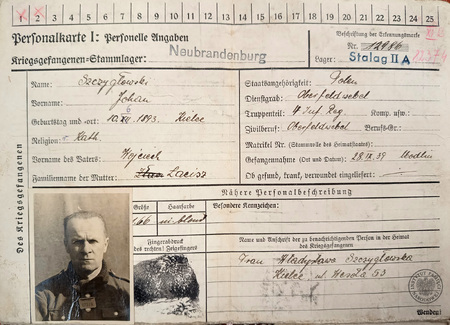 1 2 3 4 5 6 7 8 9 10 11 12 13 14 15 16 17 18 19 20 21 22 23 24 25
Personalkarte I: Personelle Angaben
Beschriftung der Erkennungsmarke
Nr. 12986
Kriegsgefangenen-Stammlager: Neubrandenburg
Lager: Stalag II A
Des Kriegsgefangenen
Name: Szczygłowski
Vorname: Johan
Geburtstag und -ort: 10. 1893. Kielce
Religion: Kath.
Vorname des Vaters: Wojciech
Familienname der Mutter: Lacisz
Staatsangehörigkeit: Polen
Dienstgrad: Oberfeldwebel
Truppenteil: 4 Inf. Reg Komp. usw.:
Zivilberuf: Oberfeldwebel Berufs-Gr.:
Matrikel Nr. (Stammrolle des Heimatstaates):
Gefangennahme (Ort und Datum): 28.IX.39 Modlin
Ob gesund, krank, verwundet eingeliefert:
Nähere Personalbeschreibung
Größe Haarfarbe Besondere Kennzeichen:
1,66 blond
Fingerabdruck
des rechten! Zeigefingers
Name und Anschrift der zu benachrichtigenden Person in der Heimat
des Kriegsgefangenen
Frau Władysława Szczygłowska
Kielce ul. Wesoła 53
Wenden!